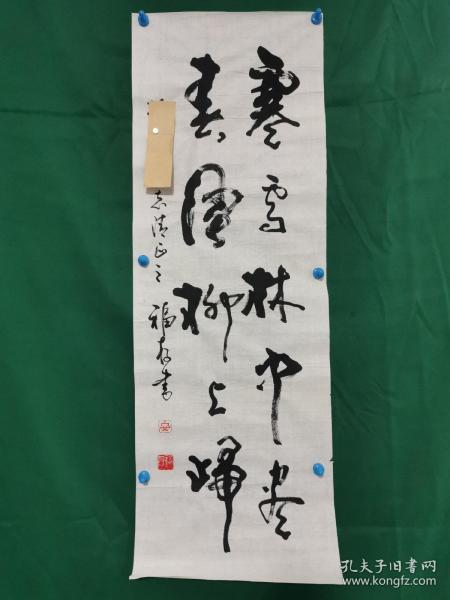 寒雪林中尽
春风柳上归
志清正之
福存书
孔夫子旧书网
www.kongfz.com